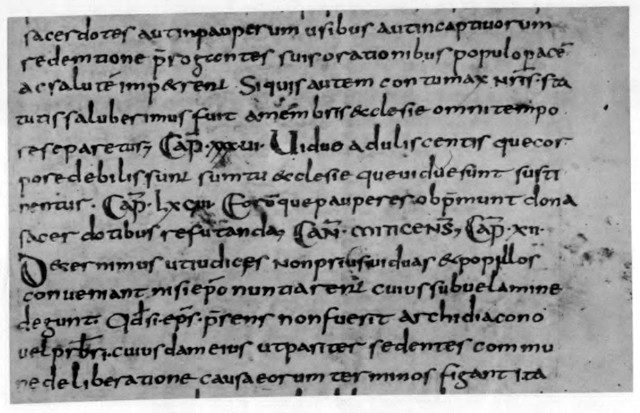 sacerdotes autinpauperum usibus autincaptiuorum
redemtione p̄rogtontes suisorationibus populopacē
acsalutē impetrent Siquisautem contumax nr̄is sta
tutissaluberimus fuit amembris ecclesie omnitempo
resepareturꝫ Cap̄ xxxui Uiduę aduliscentis quecor
poredebilissunt sumtu ecclesie queuiduesunt susti
nentur. Cap̄. lxcui Eorūquepauperes obp̄munt dona
sacerdotibus refutandaꝫ Can̄. Cap̄. xii.
Decernimus utiudices nonpriusuiduas &popillos
conueniant nisiep̄o nuntiarent cuiussubuelamine
degunt. Qd̄si ep̄s. p̄sens nonfuerit archidiacono
uelpr̄bri. cuiusdameius utpariter sedentes commu
nedeliberatione causaeorum terminos figant ita